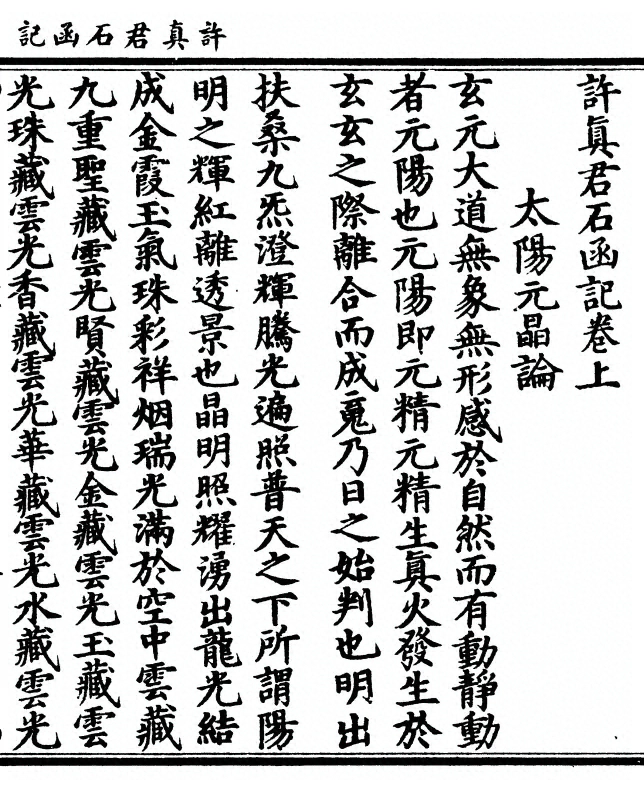 許真君石函記
許眞君石函記卷上
太陽元晶論
玄元大道無象無形感於自然而有動靜動
者元陽也元陽即元精元精生眞火發生於
玄玄之際離合而成䰟乃日之始判也明出
扶桑九炁澄輝騰光遍照普天之下所謂陽
明之輝紅離透景也晶明照耀湧出龍光結
成金霞玉氣珠彩祥烟瑞光滿於空中雲藏
九重聖藏雲光賢藏雲光金藏雲光玉藏雲
光珠藏雲光香藏雲光華藏雲光水藏雲光